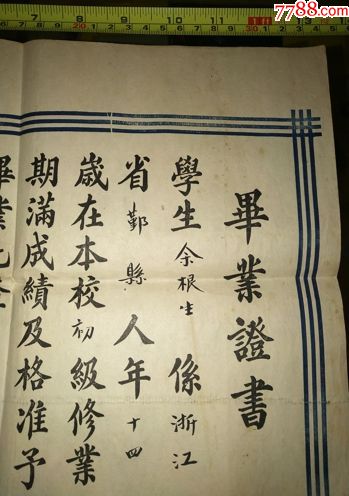 7788.com
畢業證書
學生余根生係浙江
省鄞縣人年十四
歲在本校初級修業
期滿成績及格准予
畢業